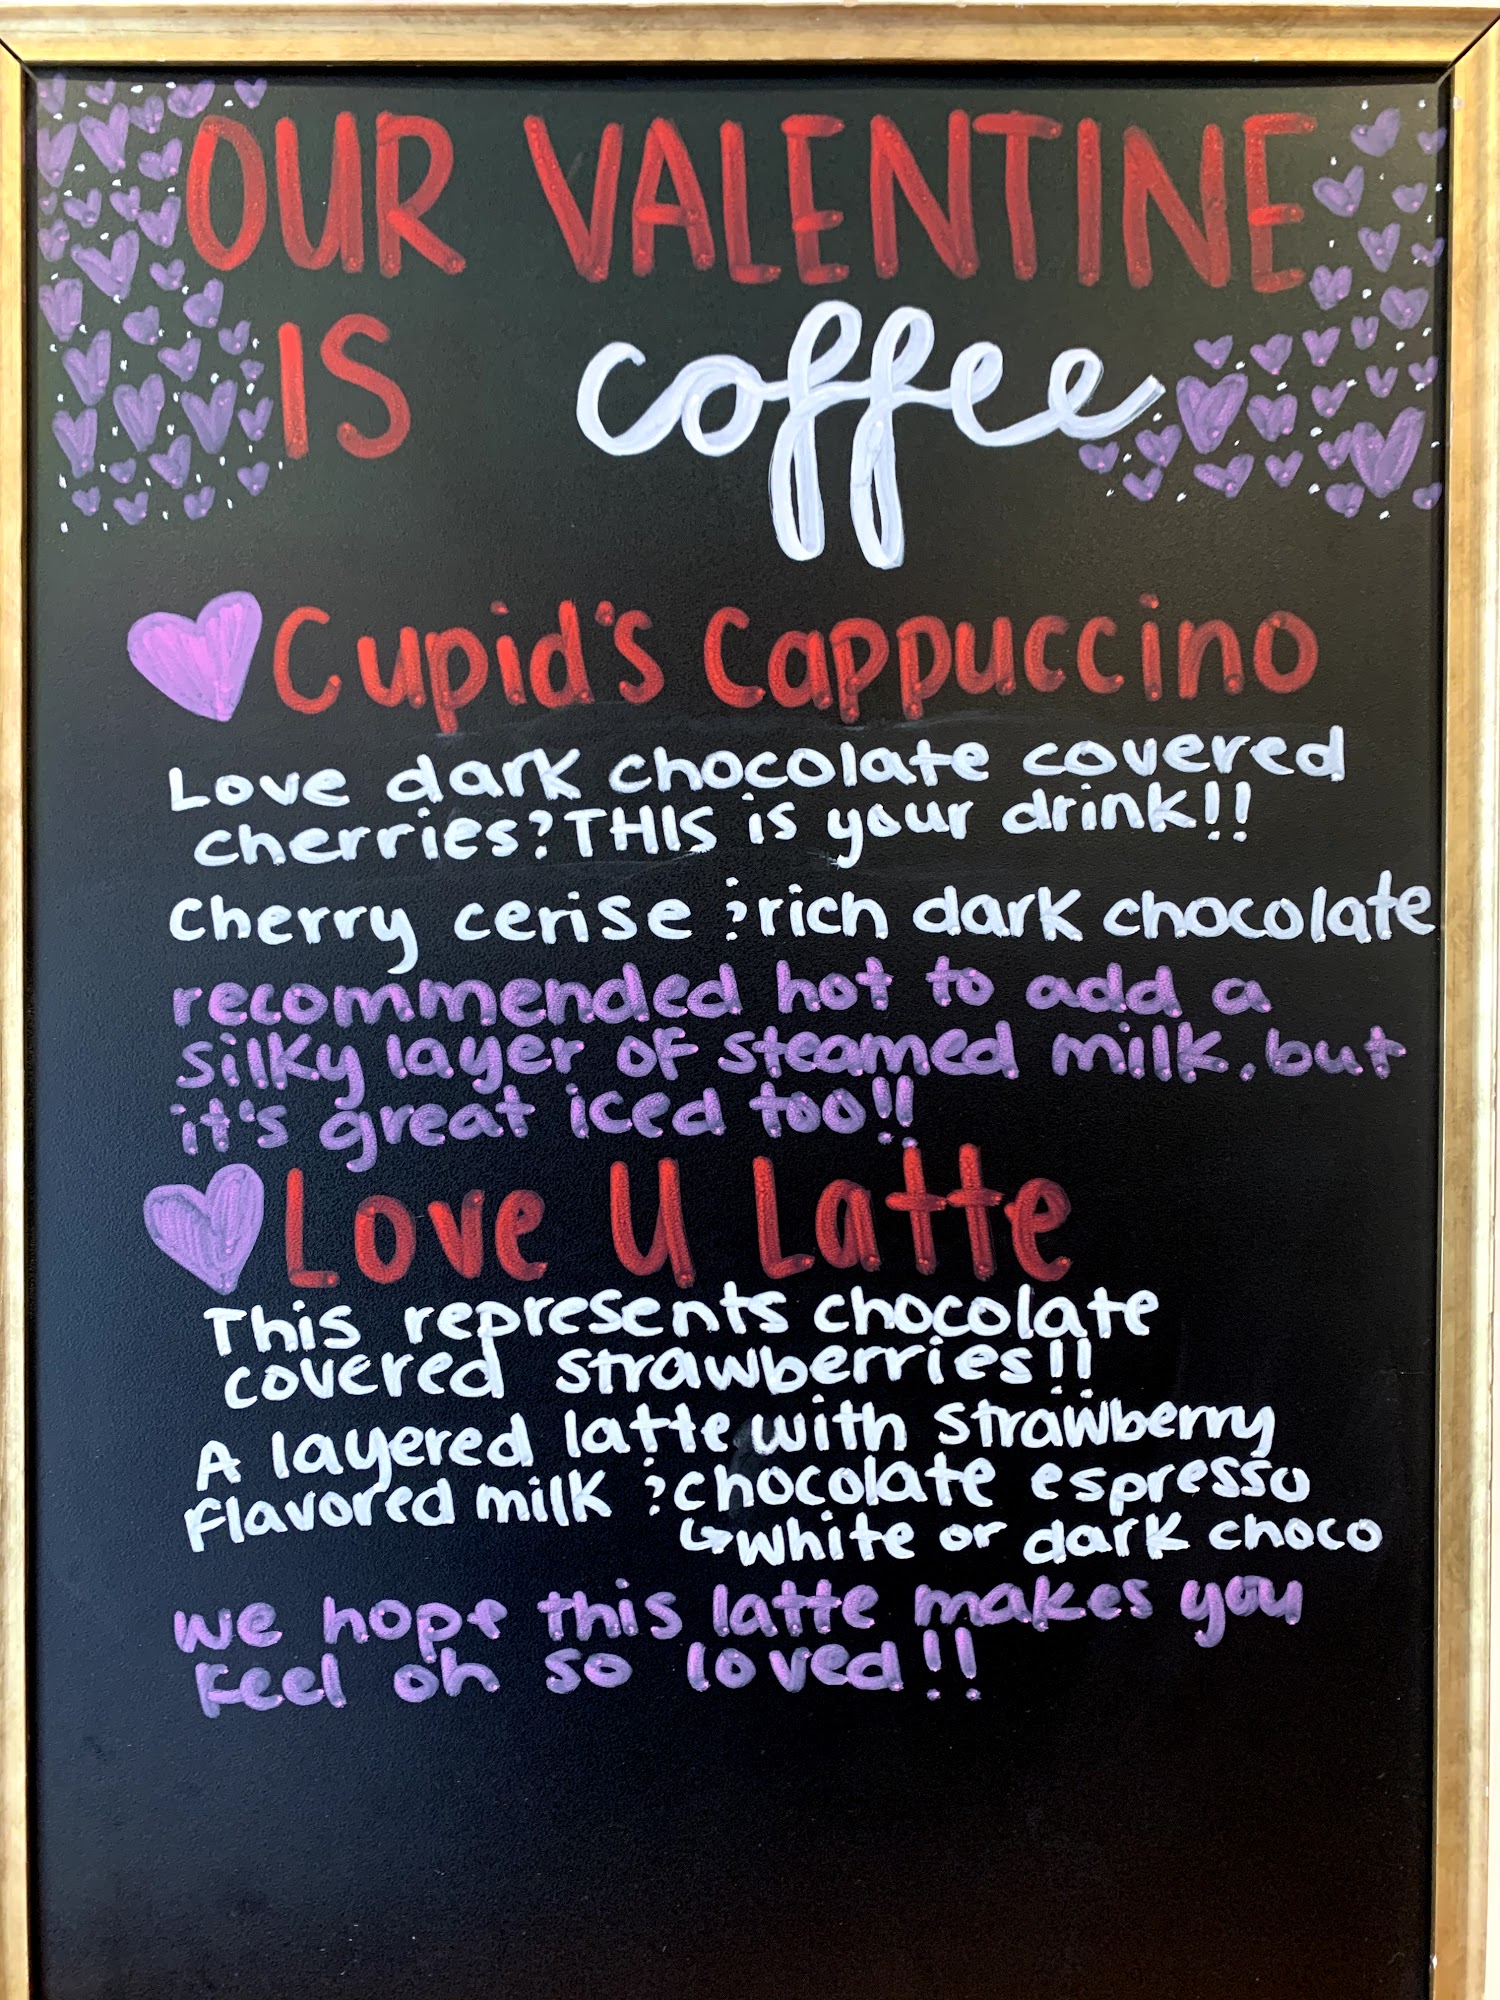 OUR VALENTINE
IS coffee
Cupid's Cappuccino
Love dark chocolate covered
cherries? THIS is your drink!!
Cherry cerise & rich dark chocolate
recommended hot to add a
silky layer of steamed milk, but
it's great iced too!!
Love U Latte
This represents chocolate
covered strawberries!!
A layered latte with strawberry
flavored milk & chocolate espresso
↳ white or dark choco
we hope this latte makes you
feel oh so loved!!